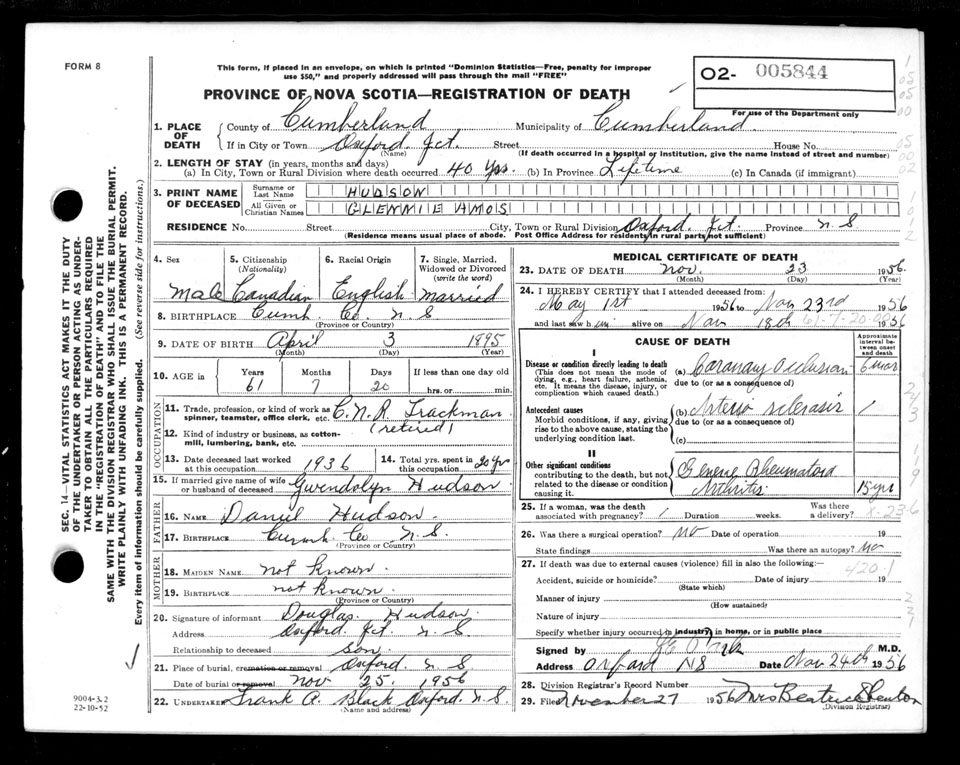 FORM 8
This form, if placed in an envelope, on which is printed "Dominion Statistics—Free, penalty for improper
use $50," and properly addressed will pass through the mail "FREE"
02- 005844
For use of the Department only
PROVINCE OF NOVA SCOTIA—REGISTRATION OF DEATH
1. PLACE OF DEATH
County of Cumberland Municipality of Cumberland
If in City or Town Oxford Jct. Street House No.
(Name) (If death occurred in a hospital or institution, give the name instead of street and number)
2. LENGTH OF STAY (in years, months and days)
(a) In City, Town or Rural Division where death occurred 40 yrs. (b) In Province Lifetime (c) In Canada (if immigrant)
3. PRINT NAME OF DECEASED
Surname or Last Name HUDSON
All Given or Christian Names GLENMIE AMOS
RESIDENCE No. Street City, Town or Rural Division Oxford Jct. Province N S
(Residence means usual place of abode. Post Office Address for residents in rural parts not sufficient)
4. Sex Male
5. Citizenship (Nationality) Canadian
6. Racial Origin English
7. Single, Married, Widowed or Divorced (write the word) Married
8. BIRTHPLACE Cumb. Co. N S
(Province or Country)
9. DATE OF BIRTH April 3 1895
(Month) (Day) (Year)
10. AGE in Years 61 Months 7 Days 20 If less than one day old hrs. or min.
OCCUPATION
11. Trade, profession, or kind of work as spinner, teamster, office clerk, etc. C.N.R. Trackman
(retired)
12. Kind of industry or business, as cotton-mill, lumbering, bank, etc.
13. Date deceased last worked at this occupation 1936
14. Total yrs. spent in this occupation 20 yrs
15. If married give name of wife or husband of deceased Gwendolyn Hudson
FATHER
16. NAME Daniel Hudson
17. BIRTHPLACE Cumb. Co N. S.
(Province or Country)
MOTHER
18. MAIDEN NAME not known
19. BIRTHPLACE not known
(Province or Country)
20. Signature of informant Douglas Hudson
Address Oxford Jct N. S
Relationship to deceased son
21. Place of burial, cremation or removal Oxford N. S
Date of burial or removal Nov 25. 1956
22. UNDERTAKER Frank A. Black Oxford N. S.
(Name and address)
MEDICAL CERTIFICATE OF DEATH
23. DATE OF DEATH Nov. 23 1956.
(Month) (Day) (Year)
24. I HEREBY CERTIFY that I attended deceased from:
May 1st 1956 to Nov 23rd 1956
and last saw him alive on Nov 18th 1956
61-7-20-00
CAUSE OF DEATH
Approximate interval between onset and death
I
Disease or condition directly leading to death
(This does not mean the mode of dying, e.g., heart failure, asthenia, etc. It means the disease, injury, or complication which caused death.)
(a) Coronary Occlusion 6 mos
due to (or as a consequence of)
Antecedent causes
Morbid conditions, if any, giving rise to the above cause, stating the underlying condition last.
(b) Arterio sclerosis
due to (or as a consequence of)
(c)
II
Other significant conditions
contributing to the death, but not related to the disease or condition causing it.
Rheumatoid
Arthritis 15 yrs
25. If a woman, was the death associated with pregnancy? Duration weeks. Was there a delivery?
26. Was there a surgical operation? No Date of operation 19
State findings Was there an autopsy? No
27. If death was due to external causes (violence) fill in also the following:—
420-1
Accident, suicide or homicide? Date of injury 19
(State which)
Manner of injury
(How sustained)
Nature of injury
Specify whether injury occurred in industry, in home, or in public place
Signed by M.D.
Address Oxford NS Date Nov 24th 1956
28. Division Registrar's Record Number
29. Filed November 27 1956 Mrs Beatrice
(Division Registrar)
SEC. 14—VITAL STATISTICS ACT MAKES IT THE DUTY
OF THE UNDERTAKER OR PERSON ACTING AS UNDER-
TAKER TO OBTAIN ALL THE PARTICULARS REQUIRED
IN THE "REGISTRATION OF DEATH" AND TO FILE THE
SAME WITH THE DIVISION REGISTRAR WHO SHALL ISSUE THE BURIAL PERMIT.
WRITE PLAINLY WITH UNFADING INK. THIS IS A PERMANENT RECORD.
Every item of information should be carefully supplied. (See reverse side for instructions.)
9004-3.2
22-10-52